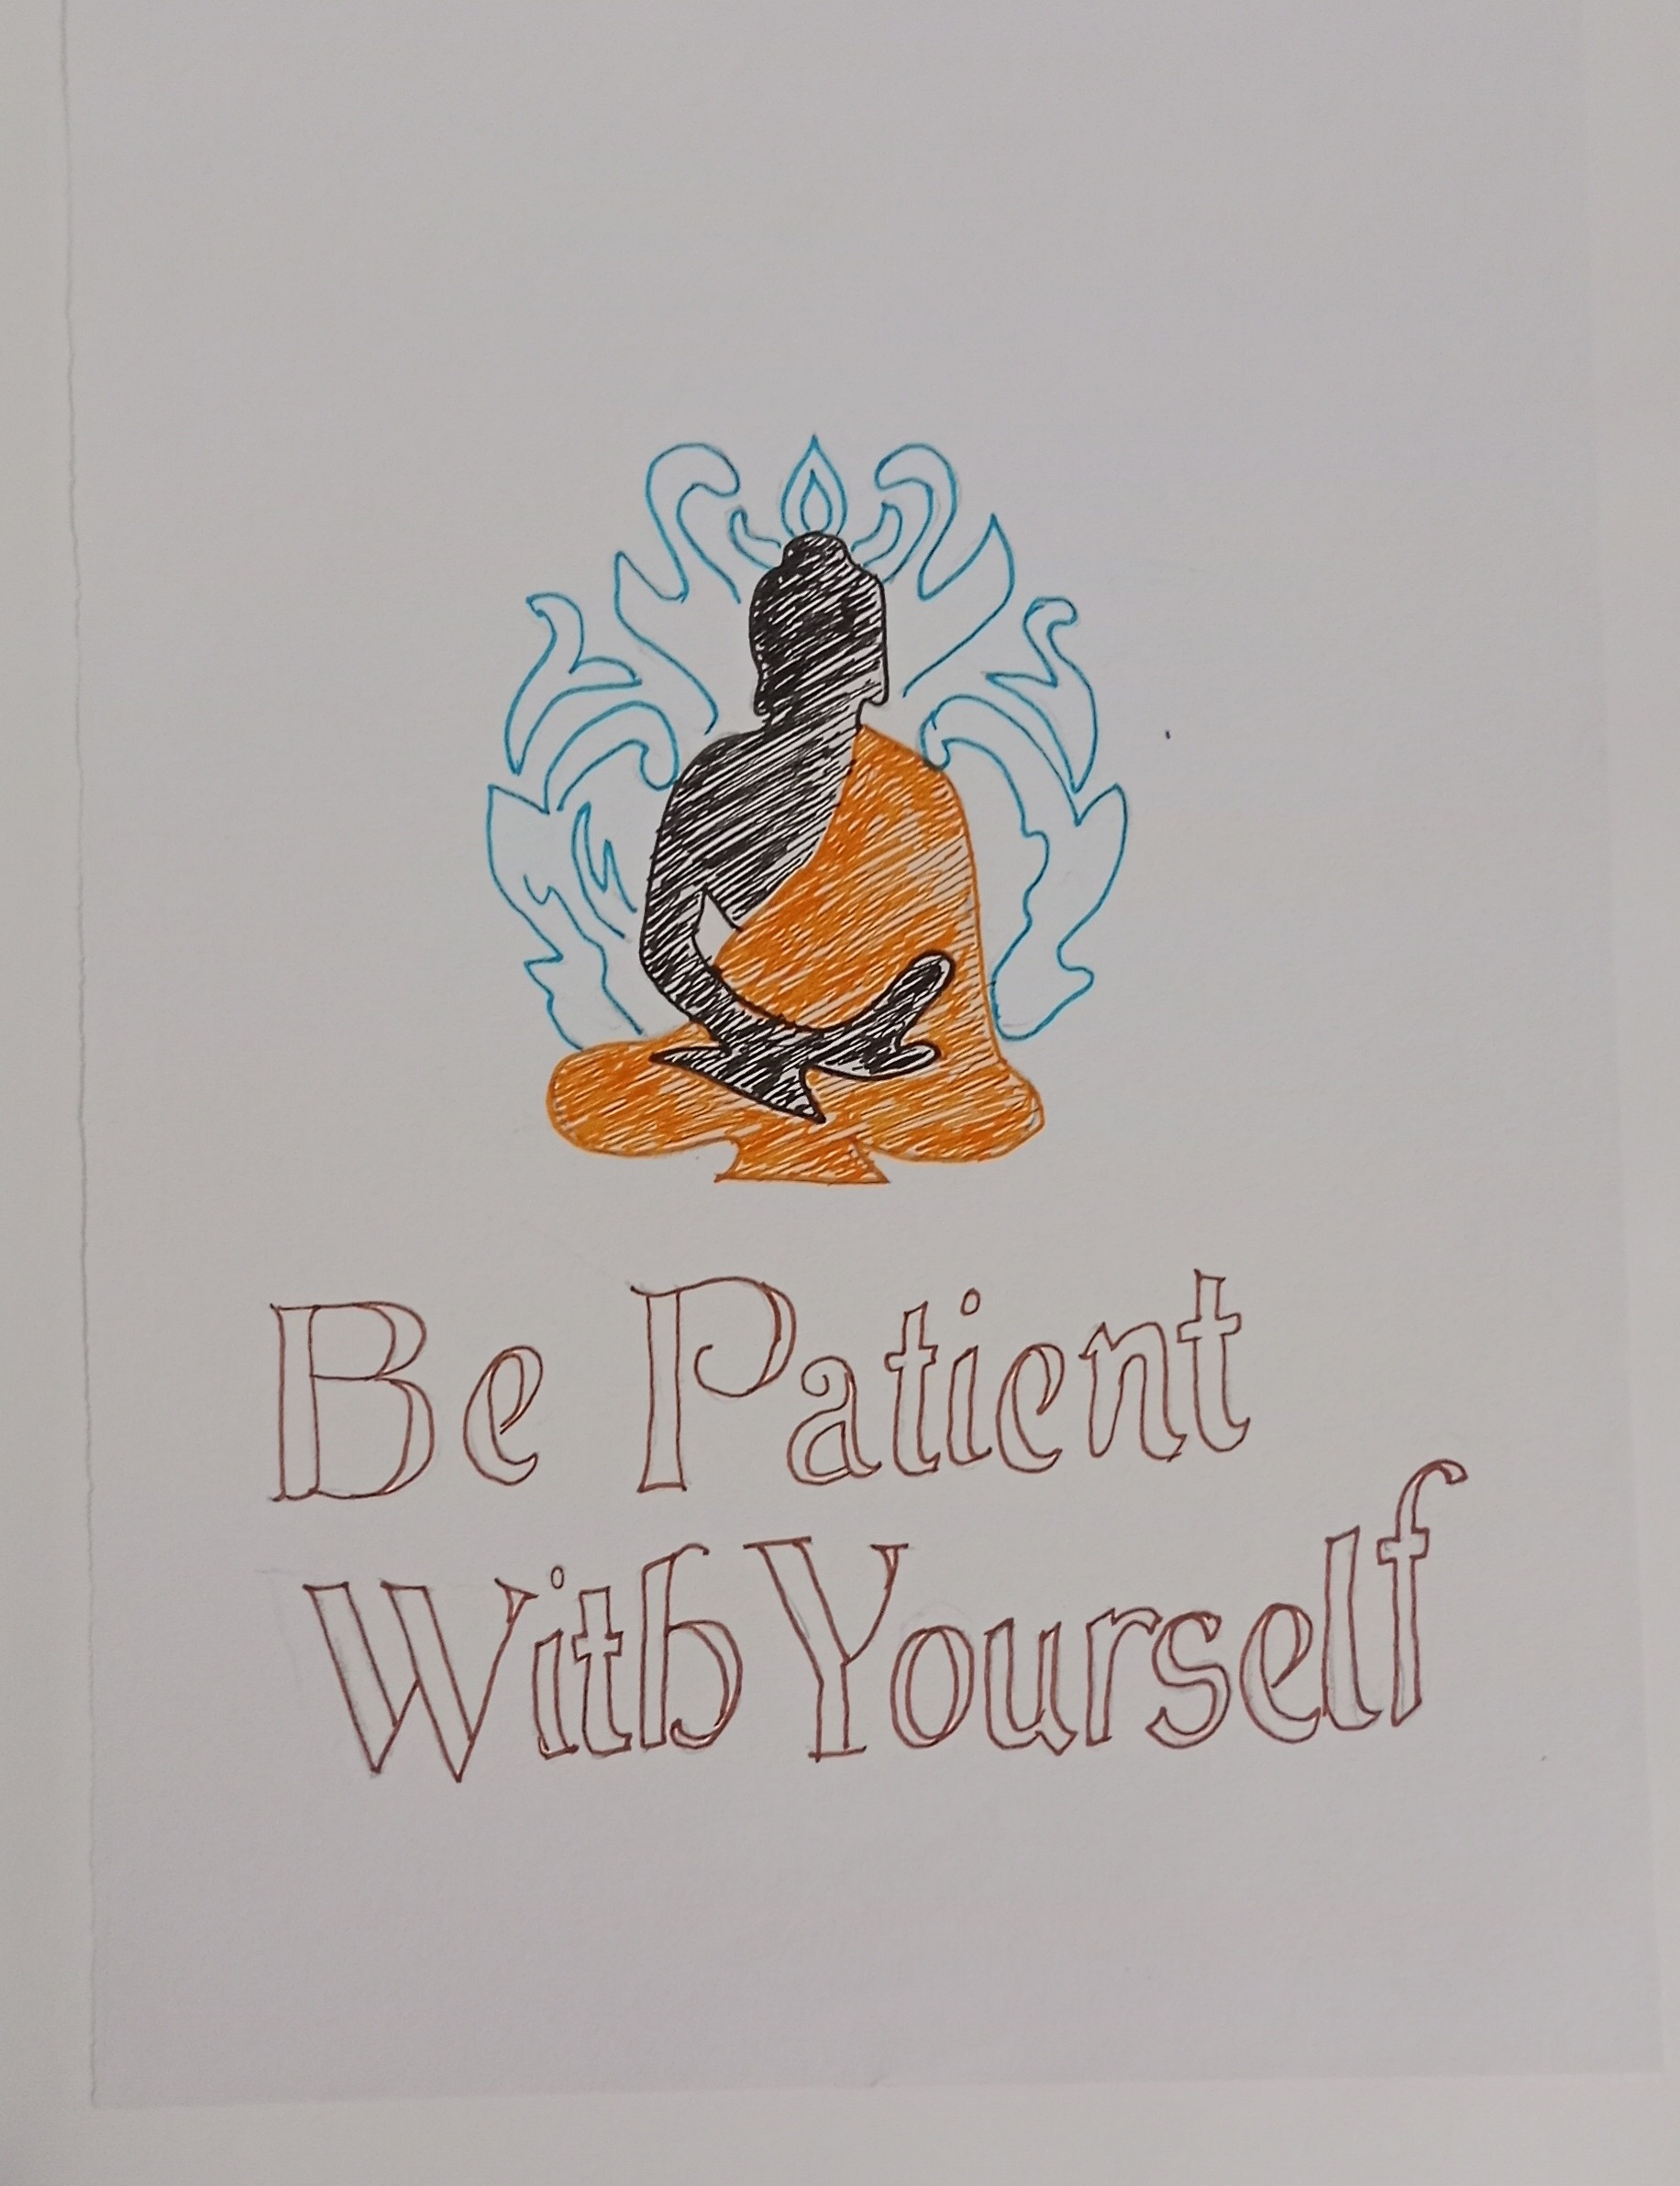 Be Patient
With Yourself